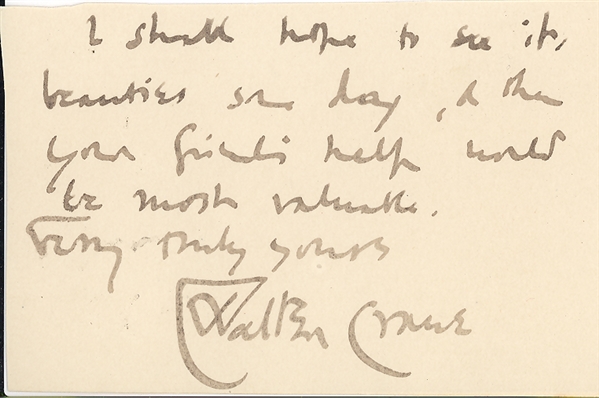 I shall hope to see its
beauties some day, & then
your friend's help would
be most valuable.
Very truly yours
Walter Crane